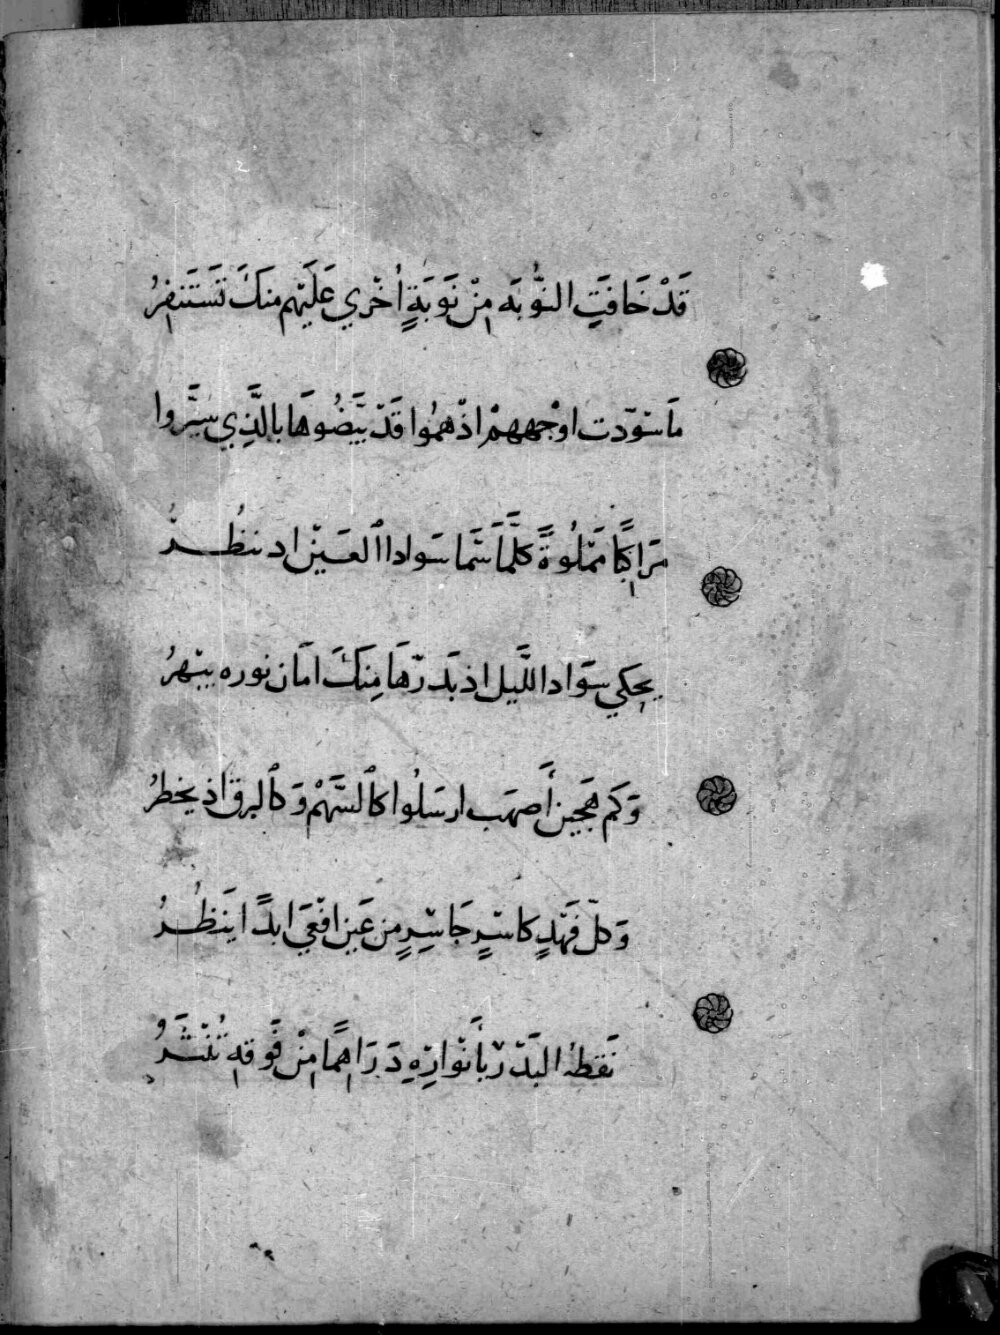 قَدْ خَافَتِ النُّوبَه مِنْ نَوبَةٍ اُخْرَي عَلَيْهِم مِنكَ تَسْتَنفِرُ
مَا سْوَدّت اوْجُههمْ اذْ همُوا قَدْ بَيَّضُوهَا بالَّذِي سَيَّروا
مَرَاكِبًا مَمْلُوةً كلَّمَا سَمَا سَوادا اَلعَيْنِ اد ننظُرُ
يَحكي سوَادا اللَّيل اذ بَدرّهَا مِنكَ امَان نوره يبْهرُ
وَكَم هَجَين أَصهَب ارسَلُوا كاَلسَّهْمْ وَكاَلبرق اذ يخطرُ
وَكلّ فَهْدٍ كاسْرٍ جَاسْرٍ من عَين افْعَي ابدًا ينَظُرُ
نَقطهُ البَدْر بأَنْوارِهِ دَرَاهِمًا مِنْ فَوقهِ تُنْثَرُ